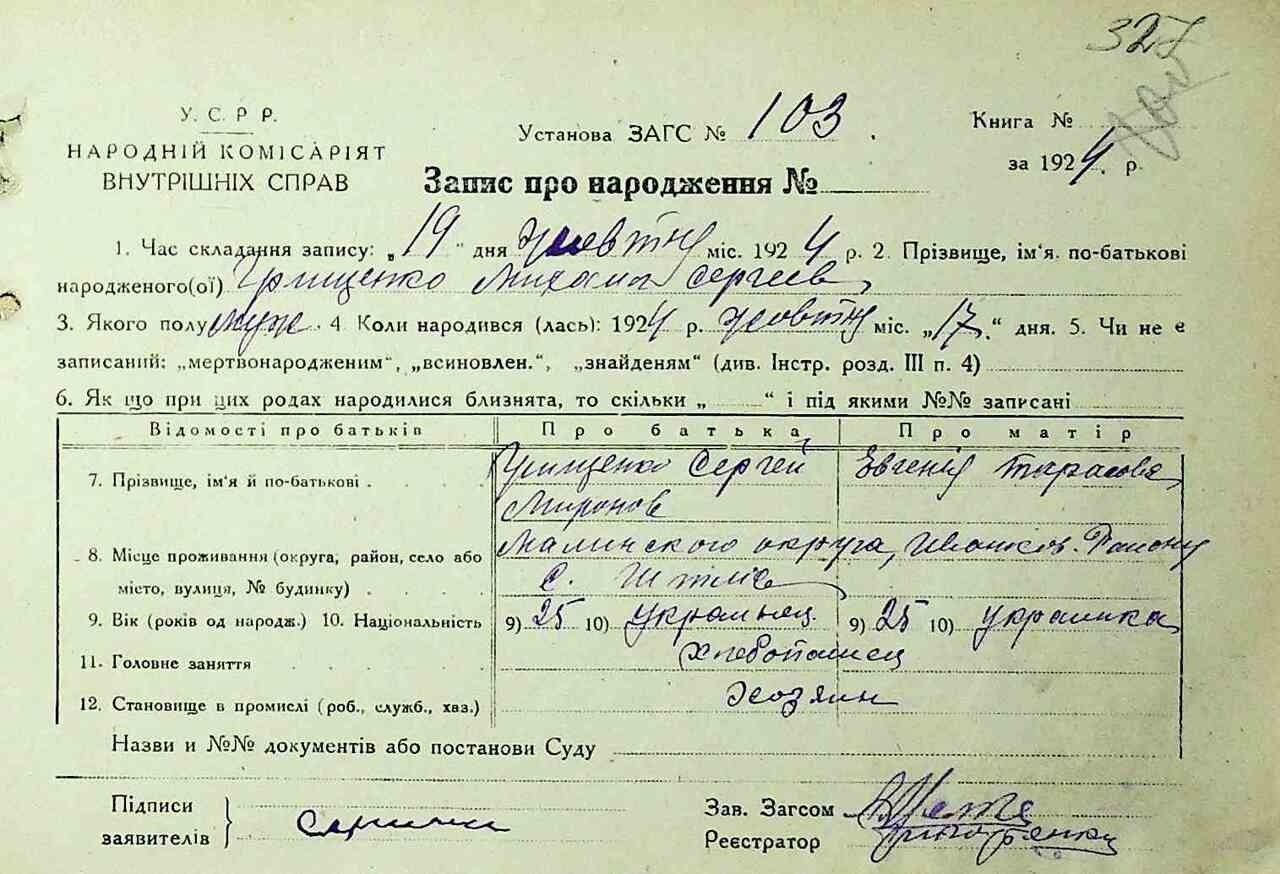 327
У. С. Р Р.
НАРОДНІЙ КОМІСАРІЯТ
ВНУТРІШНІХ СПРАВ
Установа ЗАГС № 103.
Книга №
за 1924 р.
Запис про народження №
1. Час складання запису: „19“ дня жовтня міс. 1924 р. 2. Прізвище, ім‘я. по-батькові
народженого(ої) Грищенко Михаил Сергеев
3. Якого полу муж. 4 Коли народився (лась): 1924 р. жовтня міс. „17.“ дня. 5. Чи не є
записаний: „мертвонародженим“, „всиновлен.“, „знайденям“ (див. Інстр. розд. III п. 4)
6. Як що при цих родах народилися близнята, то скільки „ “ і під якими №№ записані
Відомості про батьків Про батька Про матір
7. Прізвище, ім'я й по-батькові . Грищенко Сергей Евгения Тарасова
Миронов
8. Місце проживання (округа, район, село або Малинского округа, Иванков. Району
місто, вулиця, № будинку) . . . . с.
9. Вік (років од народж.) 10. Національність 9) 25 10) украинец 9) 25 10) украинка
11. Головне заняття Хлебопашец
12. Становище в промислі (роб., служб., хаз.) Хозяин
Назви и №№ документів або постанови Суду
Підписи
заявителів
Зав. Загсом
Реєстратор